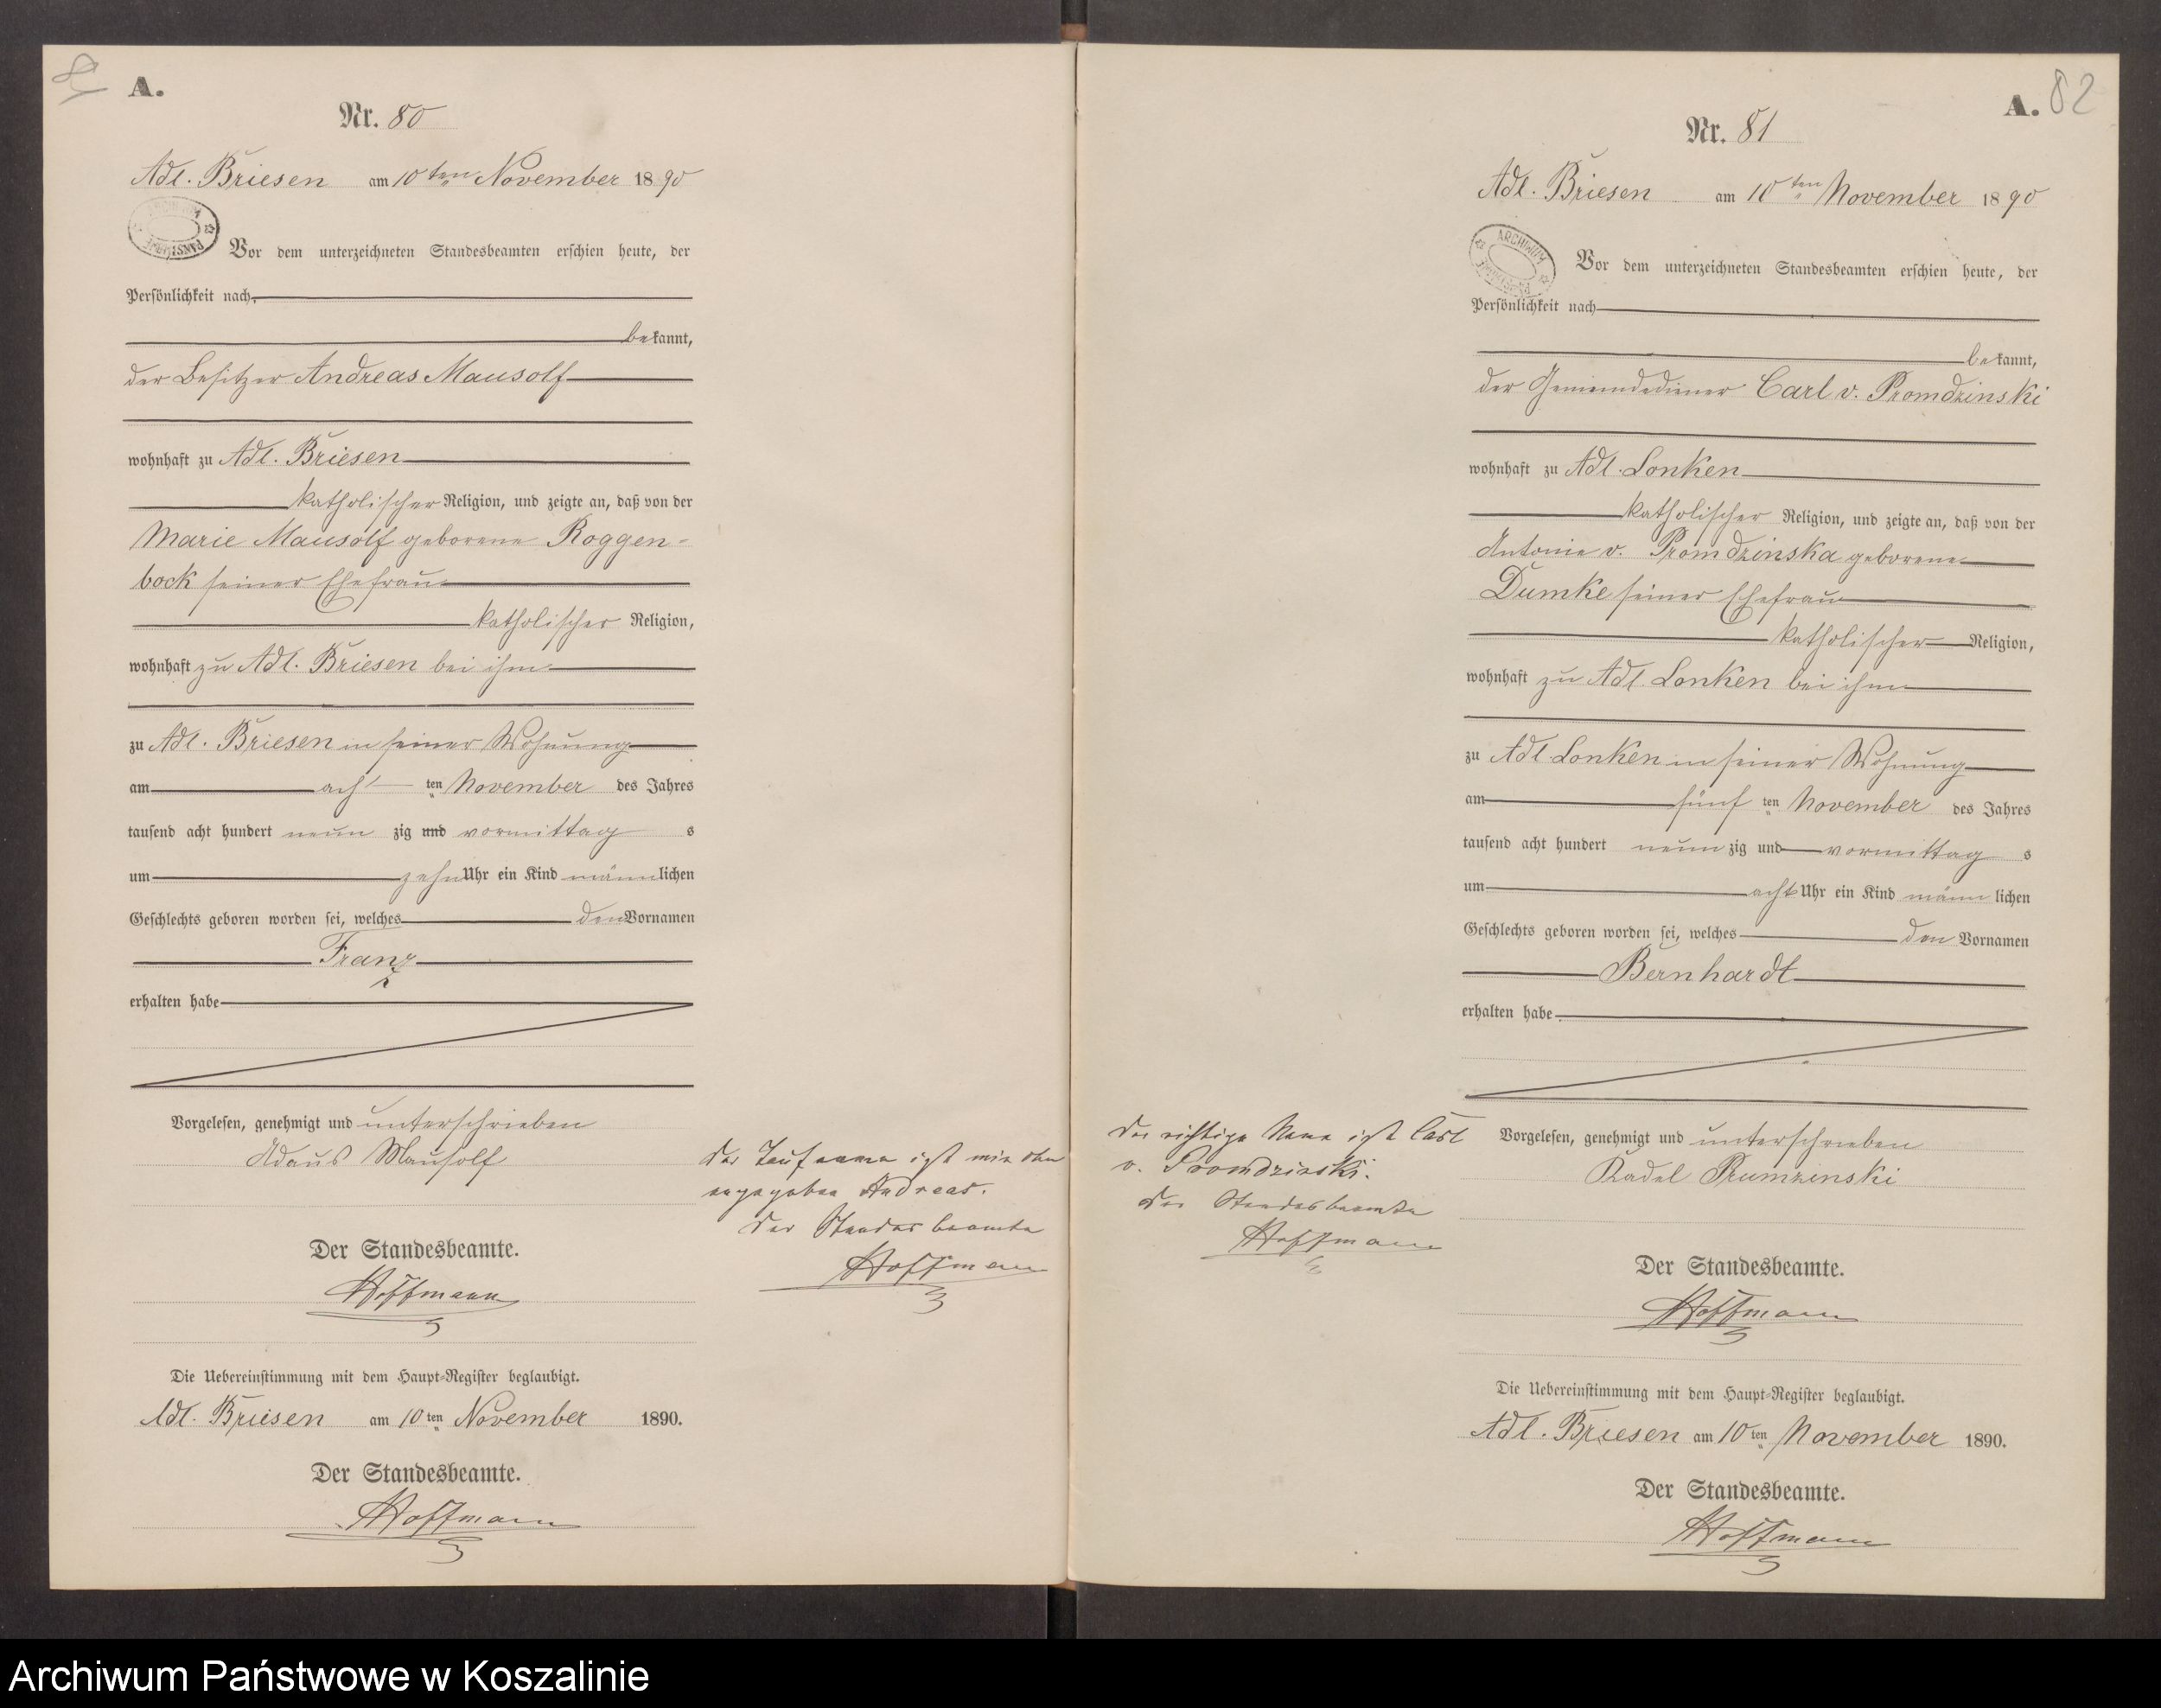 A.
Nr. 80
Adl. Briesen am 10ten November 1890
Vor dem unterzeichneten Standesbeamten erschien heute, der
Persönlichkeit nach
bekannt,
der Besitzer Andreas Mausolf
wohnhaft zu Adl. Briesen
katholischer Religion, und zeigte an, daß von der
Marie Mausolf geborene Roggen-
bock seiner Ehefrau
katholischer Religion,
wohnhaft zu Adl. Briesen bei ihm
zu Adl. Briesen in seiner Wohnung
am acht ten November des Jahres
tausend acht hundert neun zig und vormittag s
um zehn Uhr ein Kind männlichen
Geschlechts geboren worden sei, welches den Vornamen
Franz
erhalten habe
Vorgelesen, genehmigt und unterschrieben
Adaus Mausolf
Der Standesbeamte.
Hoffmann
Die Uebereinstimmung mit dem Haupt-Register beglaubigt.
Adl. Briesen am 10ten November 1890.
Der Standesbeamte.
Hoffmann
Der Taufname ist wie oben
angegeben Andreas.
Der Standesbeamte
Hoffmann
A. 82
Nr. 81
Adl. Briesen am 10ten November 1890
ARCHIWUM
Vor dem unterzeichneten Standesbeamten erschien heute, der
Persönlichkeit nach
bekannt,
der Gemeindediener Carl v. Promdzinski
wohnhaft zu Adl. Lonken
katholischer Religion, und zeigte an, daß von der
Antonie v. Promdzinska geborene
Dumke seiner Ehefrau
katholischer Religion,
wohnhaft zu Adl. Lonken bei ihm
zu Adl. Lonken in seiner Wohnung
am fünf ten November des Jahres
tausend acht hundert neun zig und vormittag s
um acht Uhr ein Kind männlichen
Geschlechts geboren worden sei, welches den Vornamen
Bernhardt
erhalten habe
Der richtige Name ist Carl
v. Promdzinski.
Der Standesbeamte
Hoffmann
Vorgelesen, genehmigt und unterschrieben
Kadel Prumzinski
Der Standesbeamte.
Hoffmann
Die Uebereinstimmung mit dem Haupt-Register beglaubigt.
Adl. Briesen am 10ten November 1890.
Der Standesbeamte.
Hoffmann
Archiwum Państwowe w Koszalinie